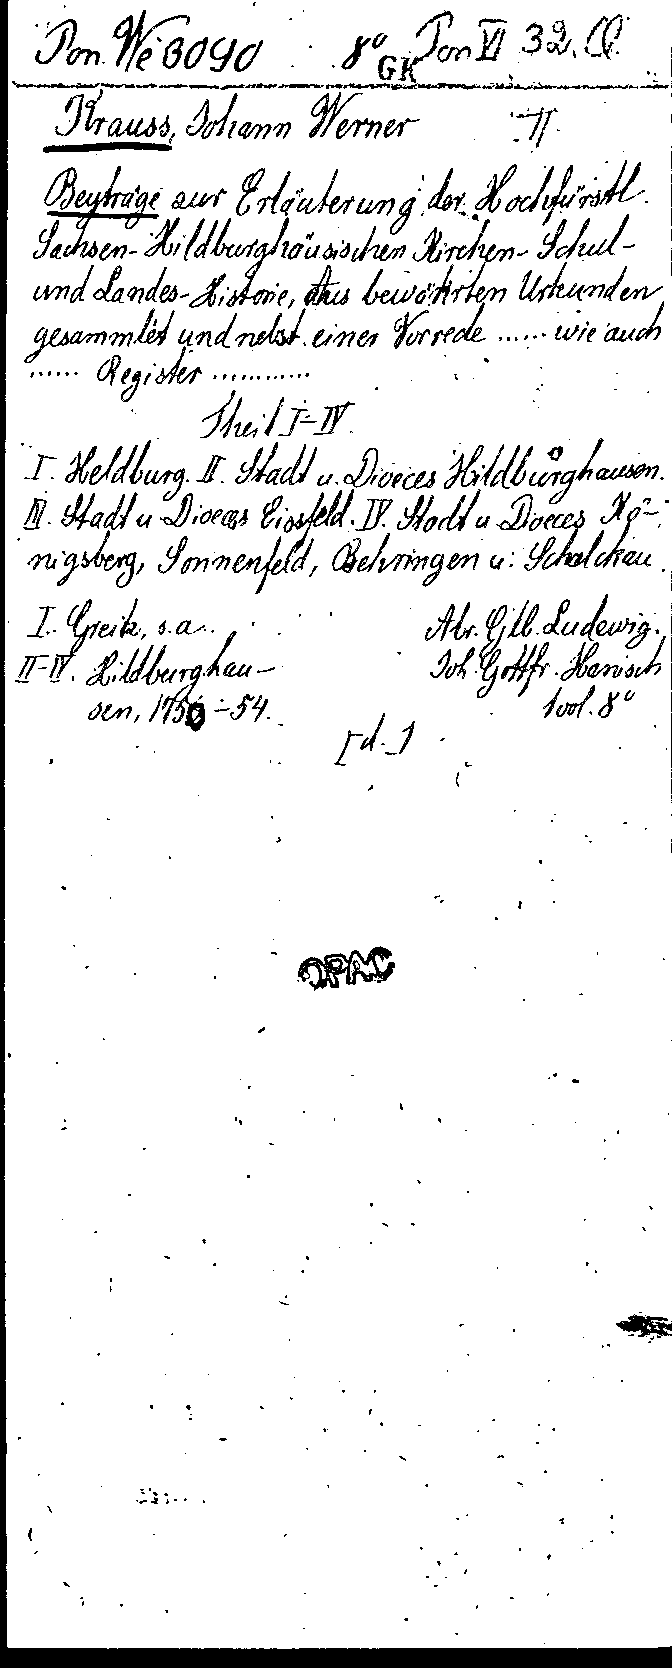 Pon We 3090 8° GK Pon VI 32, Q
Krauss, Johann Werner II
Beyträge zur Erläuterung der Hochfürstl.
Sachsen-Hildburghäusischen Kirchen- Schul-
und Landes-Historie, aus bewährten Urkunden
gesammlet und nebst einer Vorrede ...... wie auch
...... Register ............
Theil I-IV.
I. Heldburg. II. Stadt u. Dioeces Hildburghausen.
III. Stadt u Dioeces Eissfeld. IV. Stadt u Dioeces Kö-
nigsberg, Sonnenfeld, Behringen u. Schalckau
I. Greitz, s.a. Abr. Glb. Ludewig.,
II-IV. Hildburghau- Joh. Gottfr. Hanisch
sen, 1750-54. 1 vol. 8°
[d.]
OPAC